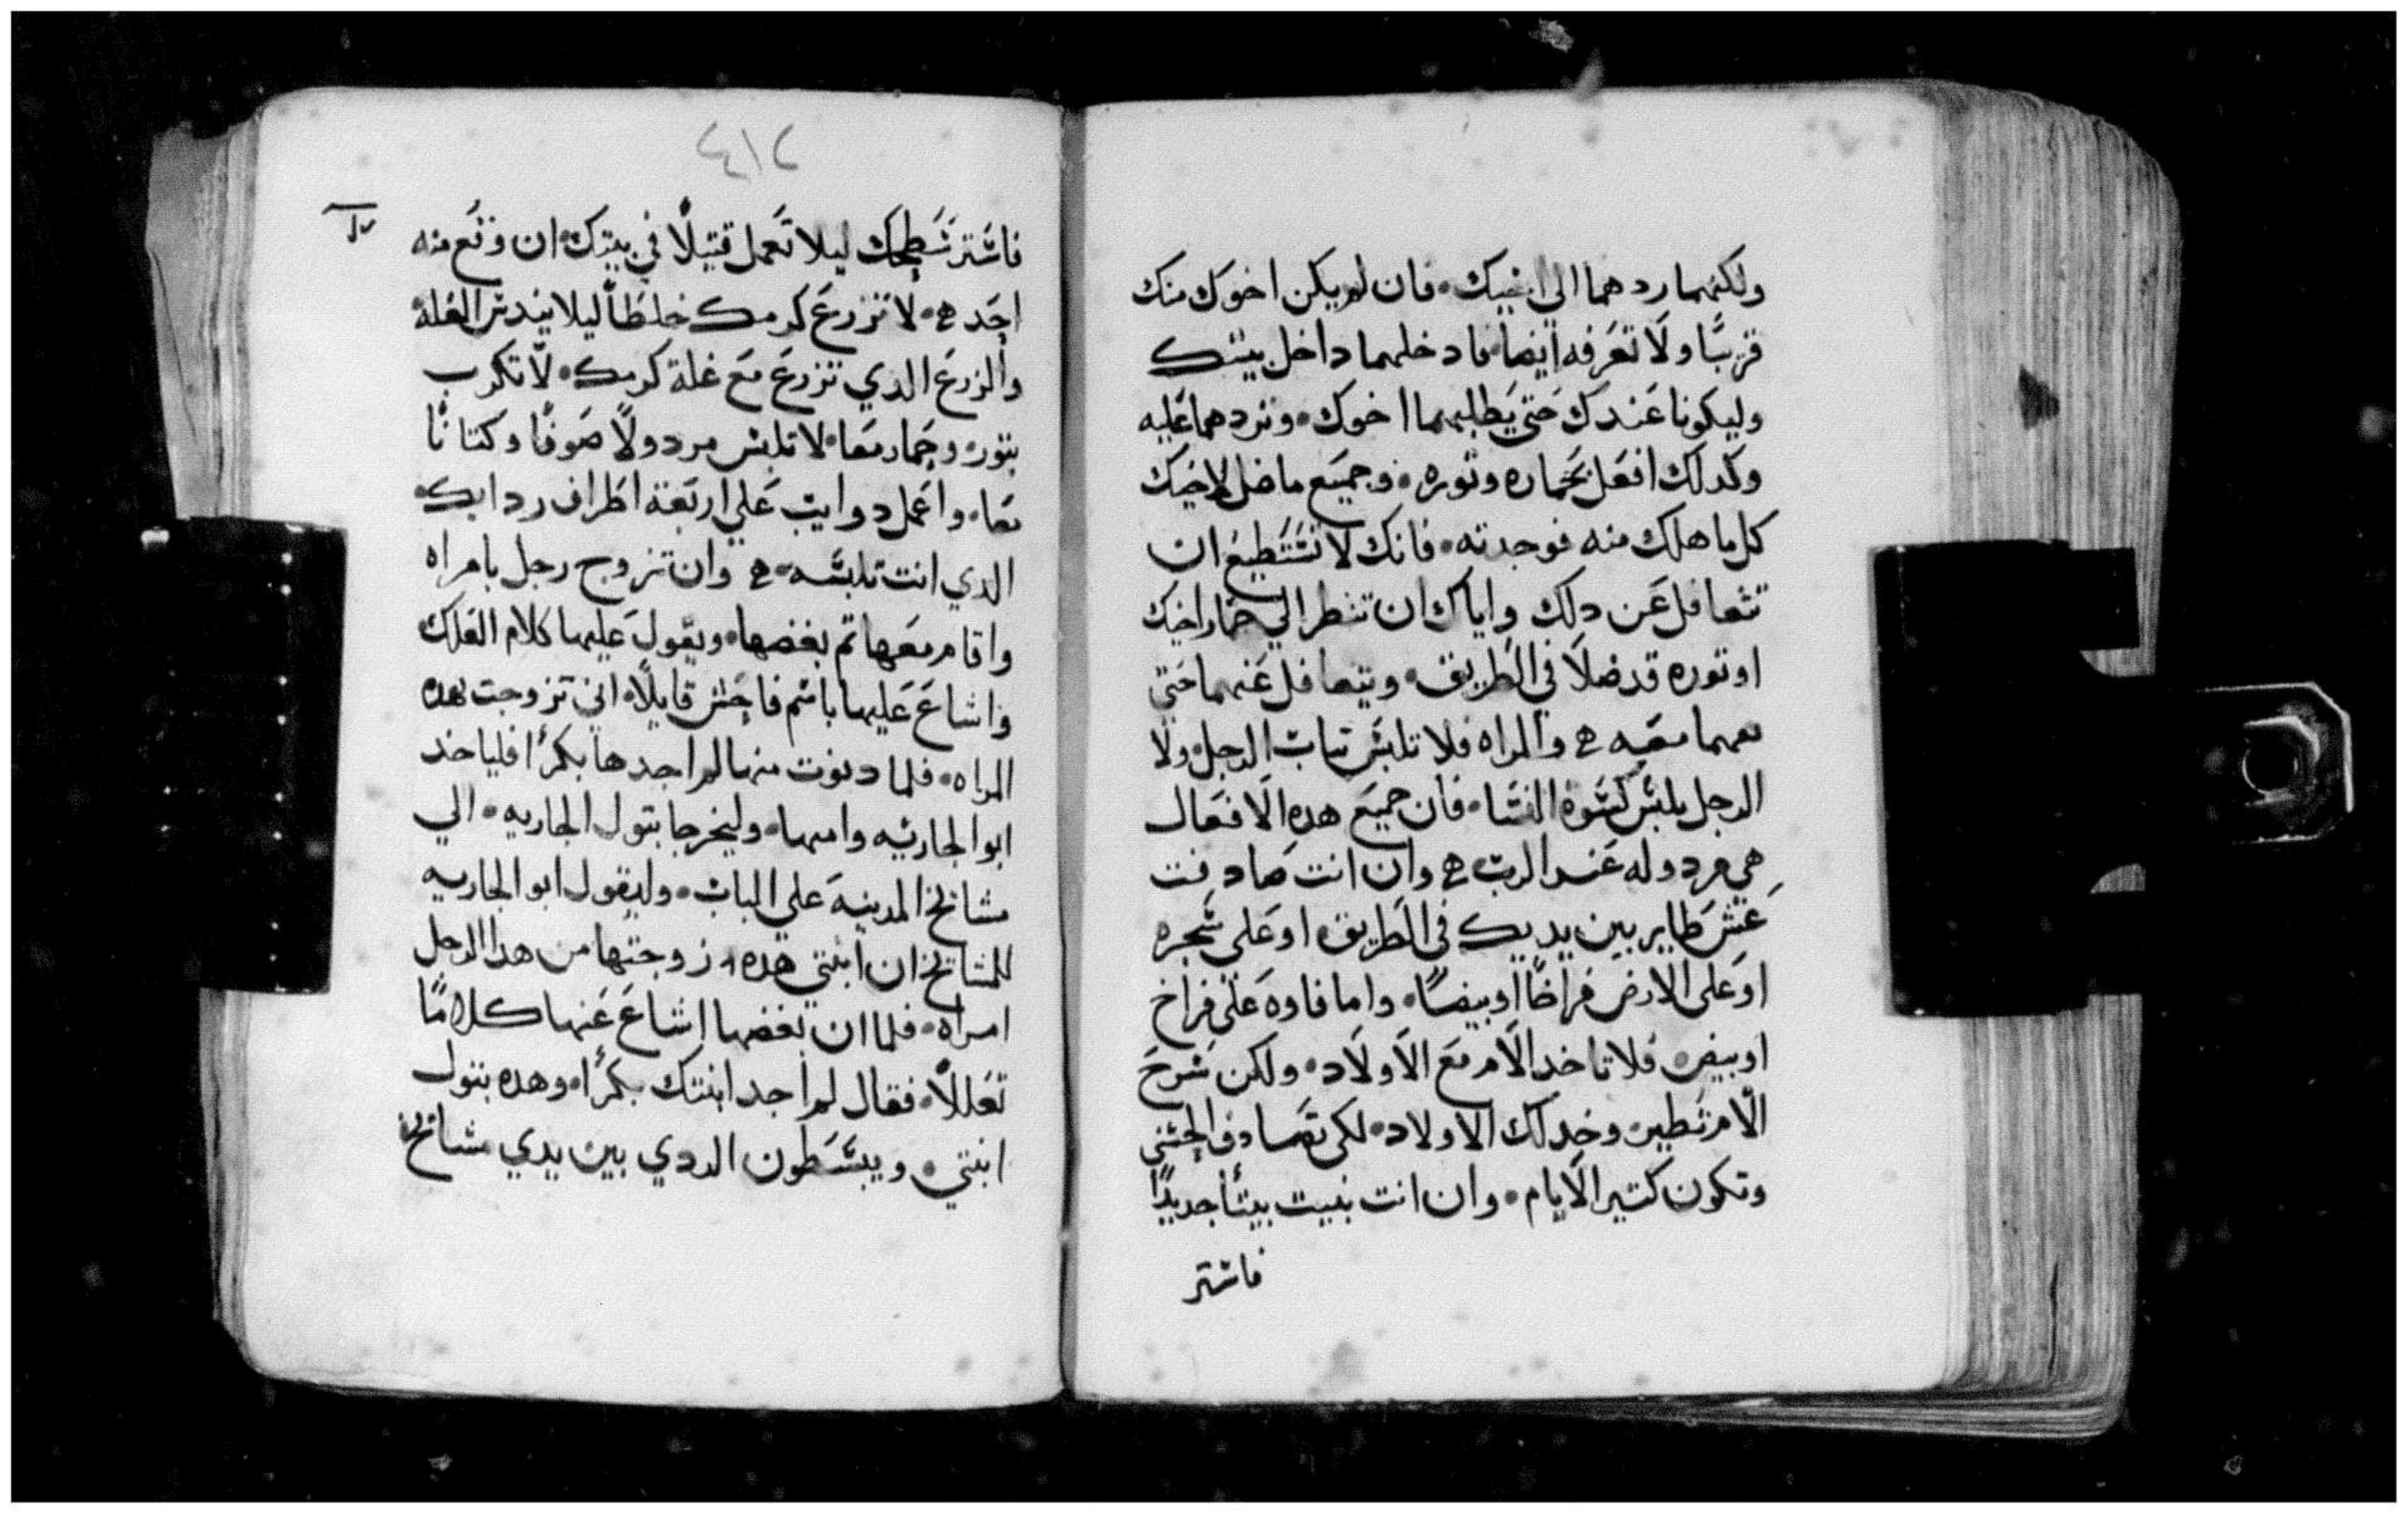 ولكنهما ردهما الي اخيك • فان لم يكن اخوك منك
قريبًا ولا تعرفه ايضا • فادخلهما داخل بيتك
وليكونا عندك حتي يطلبهما اخوك • وتردهما عليه
وكدلك افعل بحماره وتوره • وجميع ما ضل لاخيك
كل ما هلك منه فوجدته • فانك لا تستطيع ان
تتغافل عن دلك واياك ان تنظر الي حمار اخيك
او توره قد ضلا في الطريق • وتتغافل عنهما حتي
معه ه والمراه فلا تلبس تياب الرجل ولا
الرجل يلبس كسوة النسا • فان جميع هده الافعال
هي مردوله عند الرب ه وان انت صادفت
عش طاير بين يديك في الطريق او على شجره
او على الارض فراخًا او بيضًا • واما فاوه على فراخ
او بيض • فلا تاخد الام مع الاولاد • ولكن سرح
الام تطير • وخد لك الاولاد • لكي تصادف الحسني
وتكون كتير الايام • وان انت بنيت بيتًا جديدًا
فاستر
٢١٤
فاستر سطحك ليلا تعمل قتيلًا في بيتك • ان وقع منه
احد ه • لا تزرع كرمك خلطًا ليلا يندس الغلة
والزرع الدي تزرع مع غلة كرمك • لا تكرب
بتور • وحمار معا • لا تلبس مردولًا صوفًا وكتانًا
معا • واعمل دوايب علي اربعة اطراف ردايك •
الدي انت تلبسه • ه وان تزوج رجل بامراه
واقام معها تم بغضها • ويقول عليها كلام العلك
واشاع عليها باسم فاحش قايلًا • اني تزوجت هده
المراه • فلما دنوت منها لم اجدها بكرًا فلياخد
ابو الجاريه وامها • وليخرجا بتول الجاريه • الي
مشايخ المدينه على الباب • وليقول ابو الجاريه
للمشايخ ان ابنتي هده زوجتها من هدا الرجل
امراه • فلما ان بغضها اشاع عنها كلامًا
تعللًا • فقال لم اجد ابنتك بكرًا • وهده بتول
ابنتي • ويبسطون الردي بين يدي مشايخ